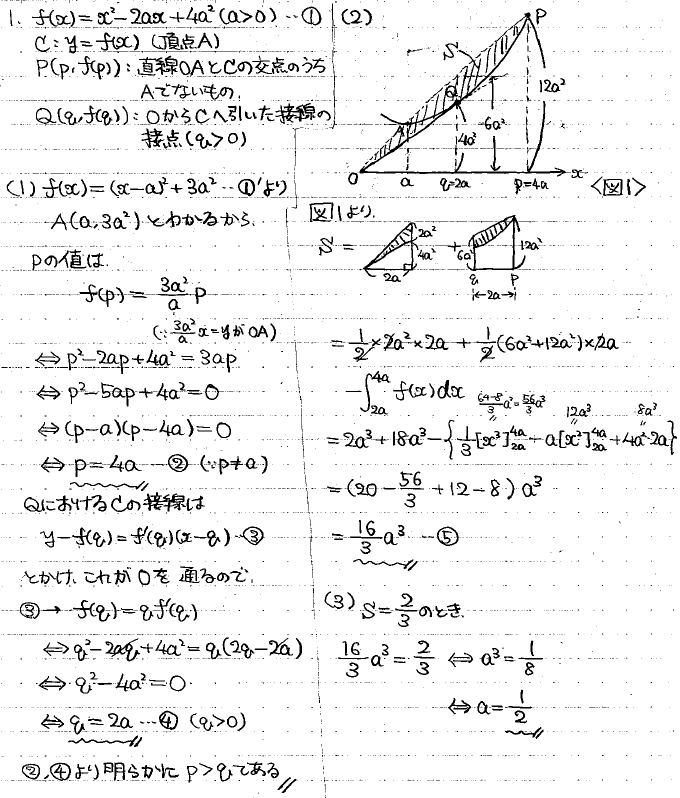 1. f(x)=x²-2ax+4a² (a>0) …①
C: y=f(x) (頂点A)
P(p, f(p)): 直線OAとCの交点のうち
Aでないもの.
Q(q, f(q)): OからCへ引いた接線の
接点(q>0)
(1) f(x)=(x-a)²+3a² …①'より
A(a, 3a²) とわかるから.
pの値は
f(p)=3a²/a p
(∵ 3a²/a x=yがOA)
⇔ p²-2ap+4a²=3ap
⇔ p²-5ap+4a²=0
⇔ (p-a)(p-4a)=0
⇔ p=4a …② (∵p≠a)
QにおけるCの接線は
y-f(q)=f'(q)(x-q) …③
とかけ. これがOを通るので.
③→ f(q)=qf'(q)
⇔ q²-2aq+4a²=q(2q-2a)
⇔ q²-4a²=0
⇔ q=2a …④ (q>0)
②,④より明らかに p>qである
(2)
P
S
Q
A
12a²
6a²
4a²
O
a
q=2a
p=4a
x
<図1>
図1より.
S =
2a²
4a²
2a
+
6a²
12a²
q
p
2a
=1/2×2a²×2a+1/2(6a²+12a²)×2a
-∫_{2a}^{4a} f(x)dx
(64-8)/3 a³=56/3 a³
12a³
8a³
=2a³+18a³-{1/3[x³]_{2a}^{4a}-a[x²]_{2a}^{4a}+4a²·2a}
=(20-56/3+12-8)a³
=16/3 a³ …⑤
(3) S=2/3のとき.
16/3 a³=2/3 ⇔ a³=1/8
⇔ a=1/2